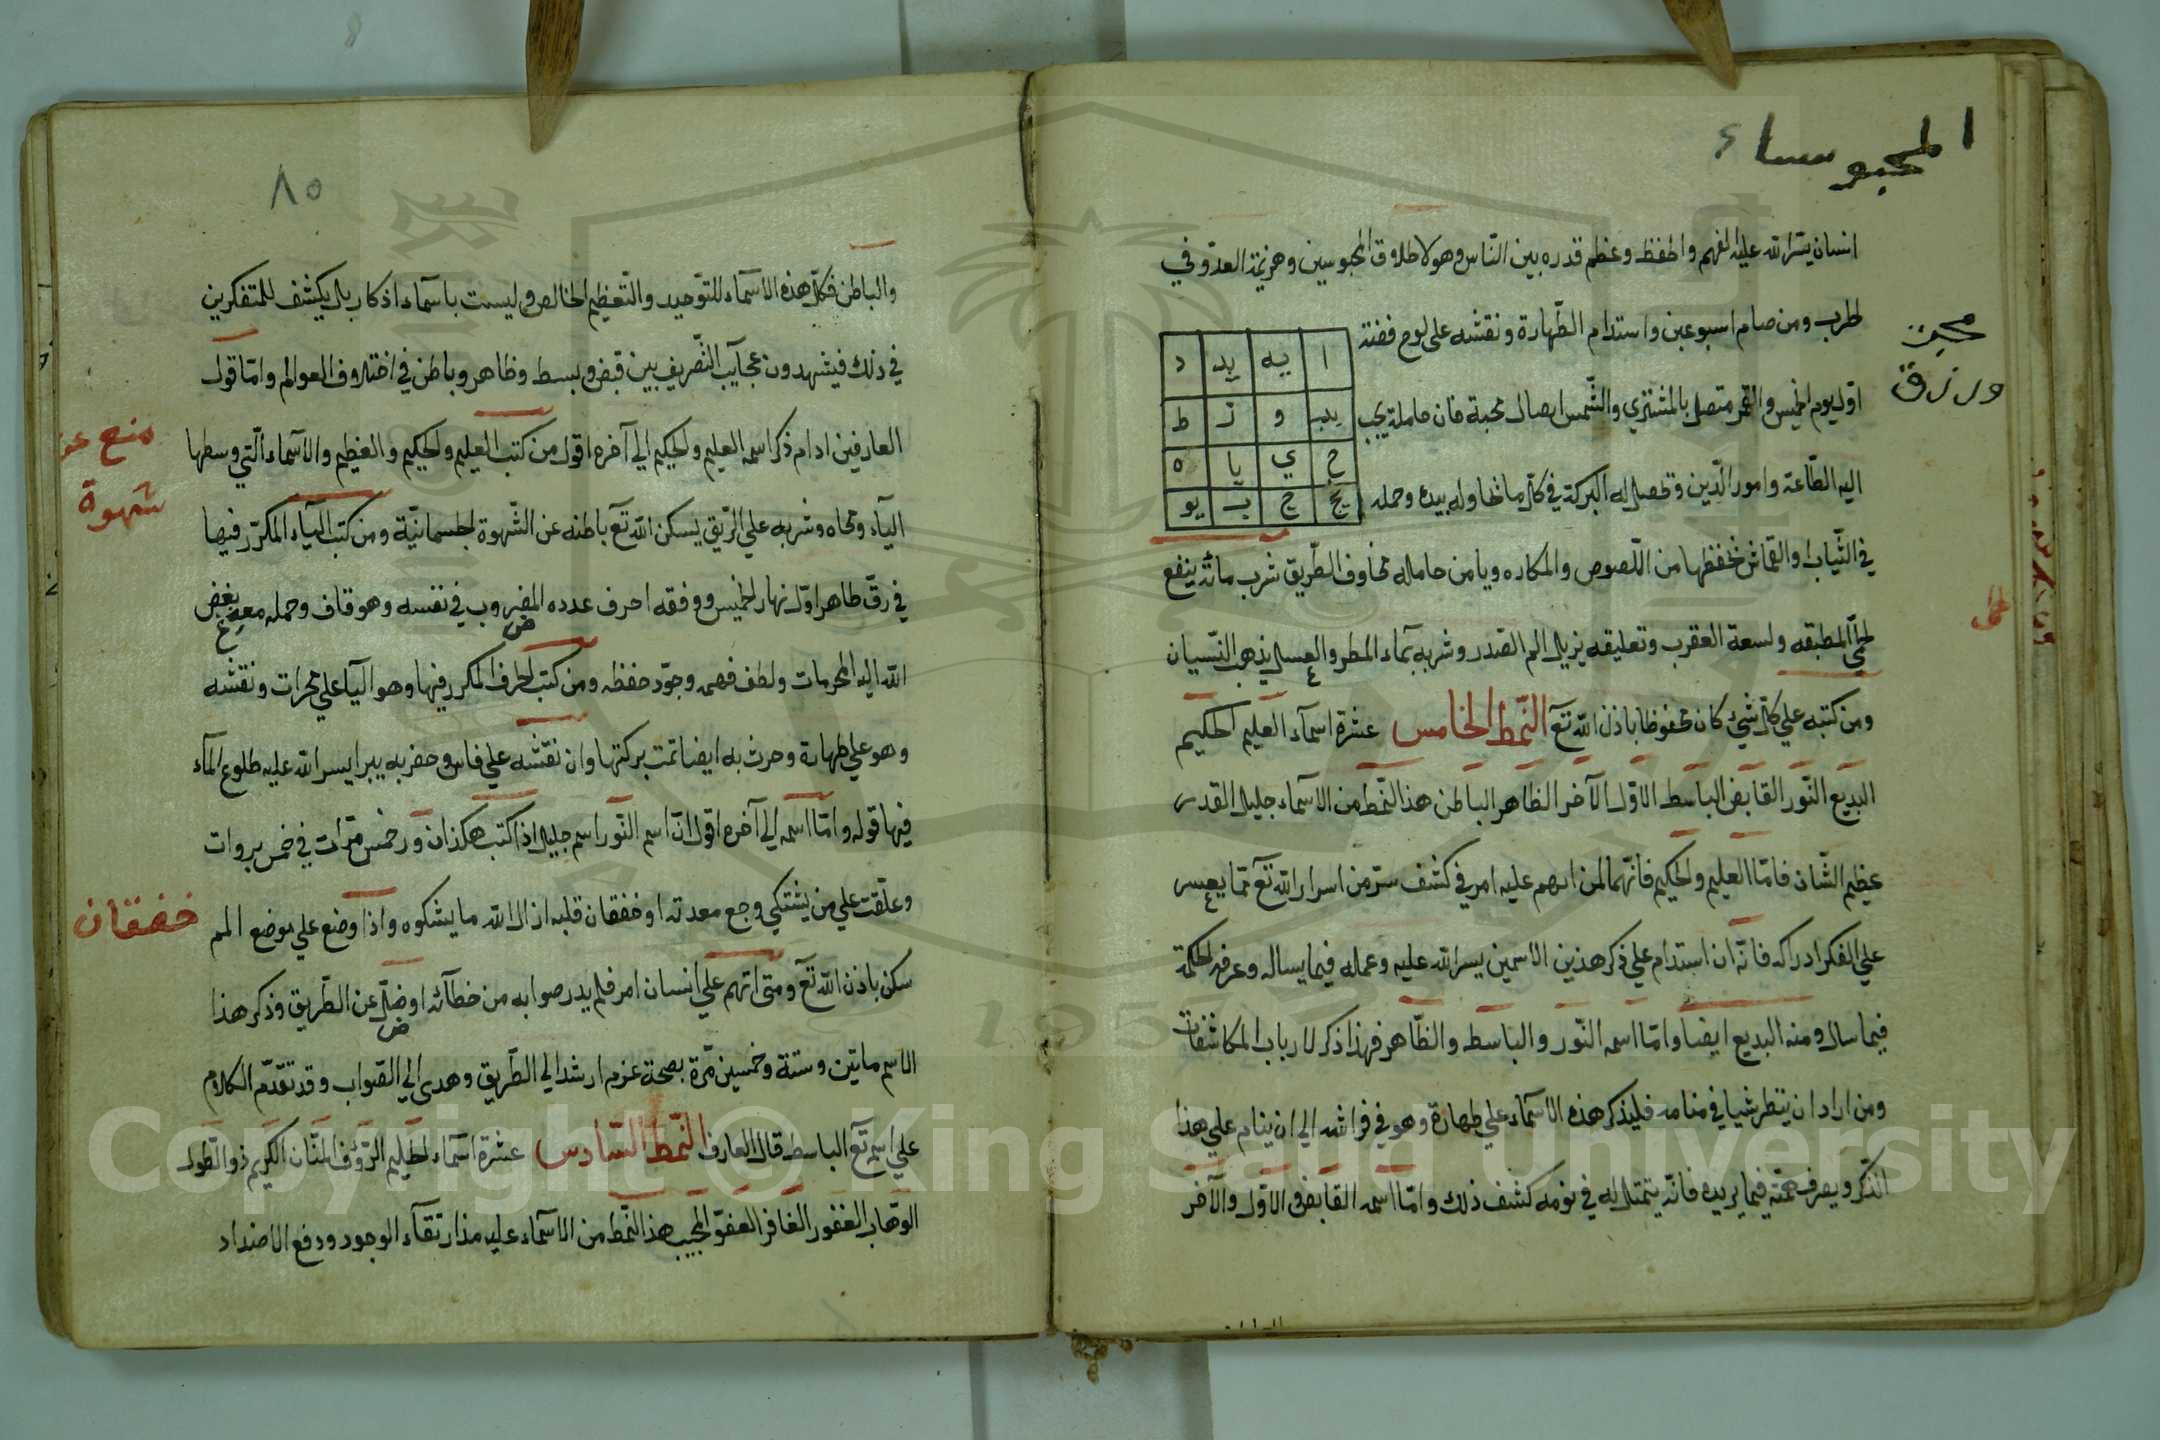 انسان يسر الله عليه الفهم والحفظ وعظم قدره بين الناس وهو لاطلاق المحبوسين وهزيمة العدو في
الحرب ومن صام اسبوعين واستدام الطهارة ونقشه على لوح فضة
محبة
ورزق
ا يه يد د
يب و ز ط
ح ي يا ه
يج ج ب يو
اول يوم الخميس والقمر متصل بالمشتري والشمس اتصال محبة فان حامله يحبب
اليه الطاعة وامور الدين وتحصل له البركة في كل ما يحاوله بيده وحمله
في الثياب والقماش يحفظها من اللصوص والمكاره ويامن حامله مخاوف الطريق شرب مائه ينفع
الحمى المطبقه ولسعة العقرب وتعليقه يزيل الم الصدر وشربه بماء المطر والعسل يذهب النسيان
ومن كتبه علي كل شيء كان محفوظا باذن الله تع النمط الخامس عشرة اسماء العليم الحكيم
البديع النور القابض الباسط الاول الآخر الظاهر الباطن هذا النمط من الاسماء جليل القدر
عظيم الشان فاما العليم والحكيم فانهما لمن ابهم عليه امر في كشف سر من اسرار الله تع مما يعسر
علي الفكر ادراكه فانه ان استدام علي ذكر هذين الاسمين يسر الله عليه وعمله فيما يساله وعرفه الحكمة
فيما سال ومنه البديع ايضا واما اسمه النور والباسط والظاهر فهذا ذكر لارباب المكاشفات
ومن اراد ان ينظر شيا في منامه فليذكر هذه الاسماء علي طهارة وهو في فراشه الي ان ينام علي هذا
الذكر ويصرف همته فيما يريده فانه يتمثل له في نومه كشف ذلك واما اسمه القابض الاول والآخر
٨٥
والباطن فكل هذه الاسماء للتوحيد والتعظيم الخالص وليست باسماء اذكار بل يكشف للمتفكرين
في ذلك فيشهدون عجايب التصريف بين قبض وبسط وظاهر وباطن في اختلاف العوالم واما قول
العارفين ادام ذكر اسمه العليم والحكيم الي آخره اقول من كتب العليم والحكيم والعظيم والاسماء التي وسطها
منع
شهوة
الياء ومحاه وشربه علي الريق يسكن الله تع باطنه عن الشهوة الجسمانية ومن كتب الياء المكرر فيها
في رق طاهر اول نهار الخميس ووفقه احرف عدده المضروب في نفسه وهو قاف وحمله معه بغض
الله اليه المحرمات ولطف فهمه وجود حفظه ومن كتب الحرف المكرر فيها وهو الياء علي محراث ونقشه
وهو علي طهارة وحرث به ايضا تمت بركتها وان نقشه علي فاس وحفر به بيرا يسر الله عليه طلوع الماء
فيها قوله واما اسمه الي آخره اقول ان اسم النور اسم جليل اذا كتب هكذا ن و ر خمس مرات في خمس بروات
خفقان
وعلقت علي من يشتكي وجع معدته او خفقان قلبه ازال الله ما يشكوه واذا وضع علي موضع الم
سكن باذن الله تع ومتى ابهم علي انسان امر فلم يدر صوابه من خطائه او ضل عن الطريق وذكر هذا
الاسم ماتين وستة وخمسين مرة بصحة عزم ارشد الي الطريق وهدى الي الصواب وقد تقدم الكلام
علي اسمه تع الباسط قال العارف النمط السادس عشرة اسماء الحليم الرؤف المنان الكريم ذو الطول
الوهاب الغفور الغافر العفو المجيب هذا النمط من الاسماء عليه مدار تقاء الوجود ودفع الاضداد
Copyright © King Saud University